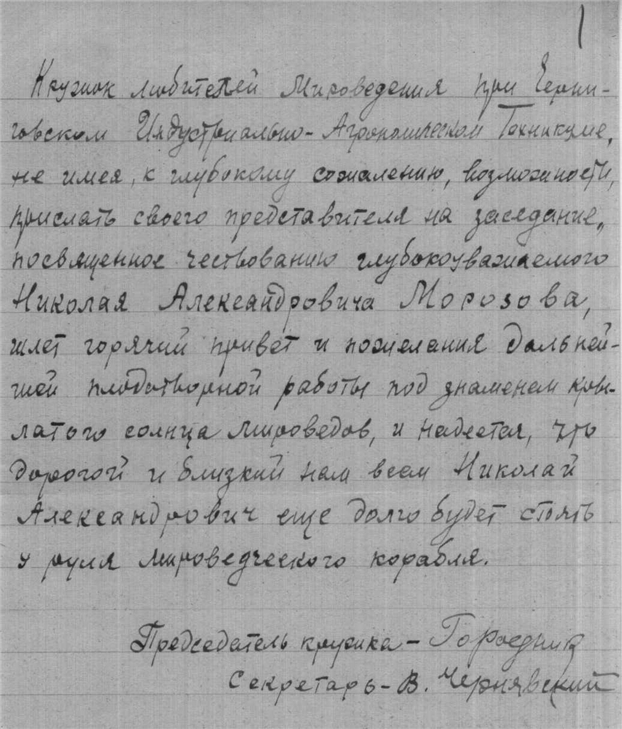 1
Кружок любителей Мироведения при Черни-
говском Индустриально-Агрономическом Техникуме,
не имея, к глубокому сожалению, возможности,
прислать своего представителя на заседание,
посвященное чествованию глубокоуважаемого
Николая Александровича Морозова,
шлет горячий привет и пожелания дальней-
шей плодотворной работы под знаменем кры-
латого солнца мироведов, и надеется, что
дорогой и близкий нам всем Николай
Александрович еще долго будет стоять
у руля мироведческого корабля.
Председатель кружка-
Секретарь-В. Чернявский